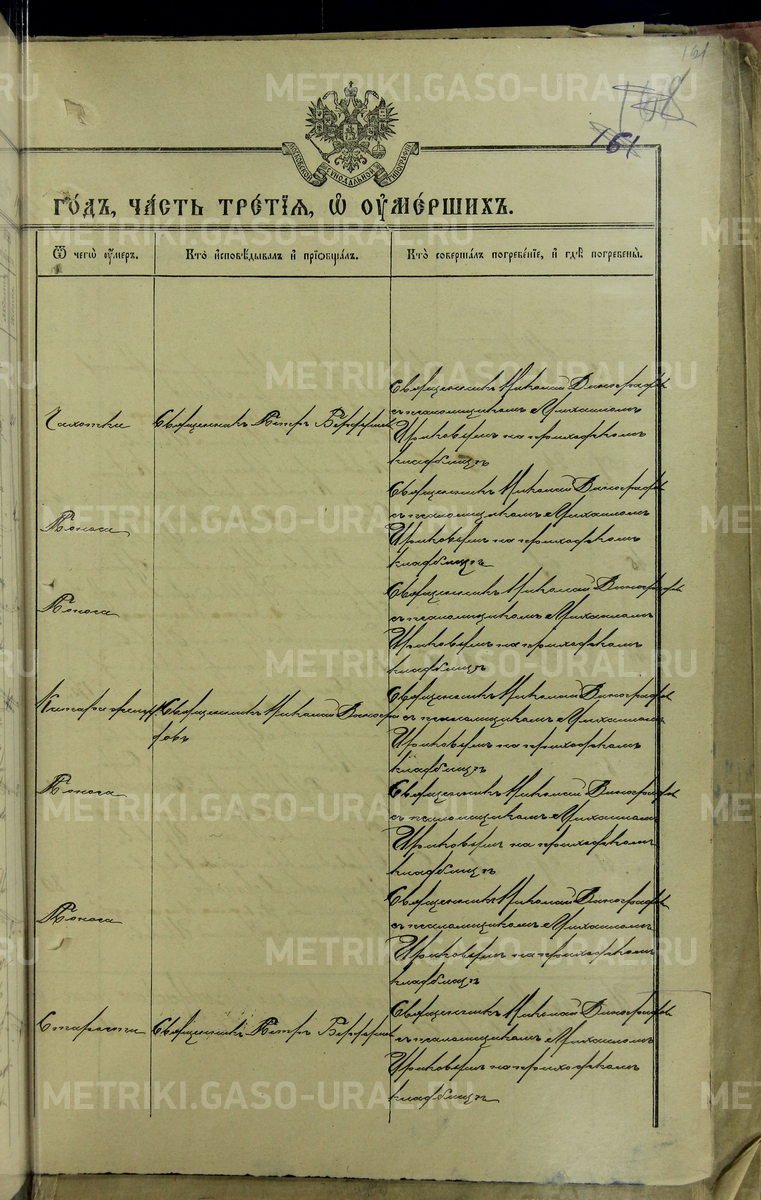 161
168
161
МОСКОВСКОЙ СѴНОДАЛЬНОЙ ТИПОГРАФІИ
го́дъ, ча́сть тре́тїѧ, ѡ҆ ᲂу҆ме́ршихъ.
Ѿ чегѡ̀ ᲂу҆́меръ.
Кто̀ и҆сповѣ́дывалъ и҆ прїѻбща́лъ.
Кто̀ соверша́лъ погребе́нїе, и҆ гдѣ̀ погребены̀.
Чахотки
Священникъ Петръ
Священникъ Николай Виноградов
съ псаломщикомъ Михаиломъ
на приходскомъ
кладбищѣ
Поноса
Священникъ Николай Виноградов
съ псаломщикомъ Михаиломъ
на приходскомъ
кладбищѣ
Поноса
Священникъ Николай Виноградов
съ псаломщикомъ Михаиломъ
на приходскомъ
кладбищѣ
Священникъ Николай Виногра
довъ
Священникъ Николай Виноградов
съ псаломщикомъ Михаиломъ
на приходскомъ
кладбищѣ
Поноса
Священникъ Николай Виноградов
съ псаломщикомъ Михаиломъ
на приходскомъ
кладбищѣ
Поноса
Священникъ Николай Виноградов
съ псаломщикомъ Михаиломъ
на приходскомъ
кладбищѣ
Старости
Священникъ Петръ
Священникъ Николай Виноградов
съ псаломщикомъ Михаиломъ
на приходскомъ
кладбищѣ
METRIKI.GASO-URAL.RU